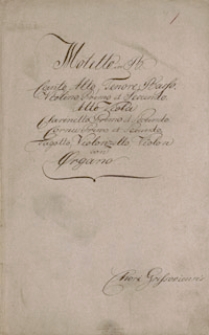 1
Motetto
Canto Alto, Tenore, Basso,
Violino Primo et Secundo
Alto Viola
Primo et Secundo
Corno Primo et Secundo
Fagotto, Violoncello, Violone
con
Organo
Chori